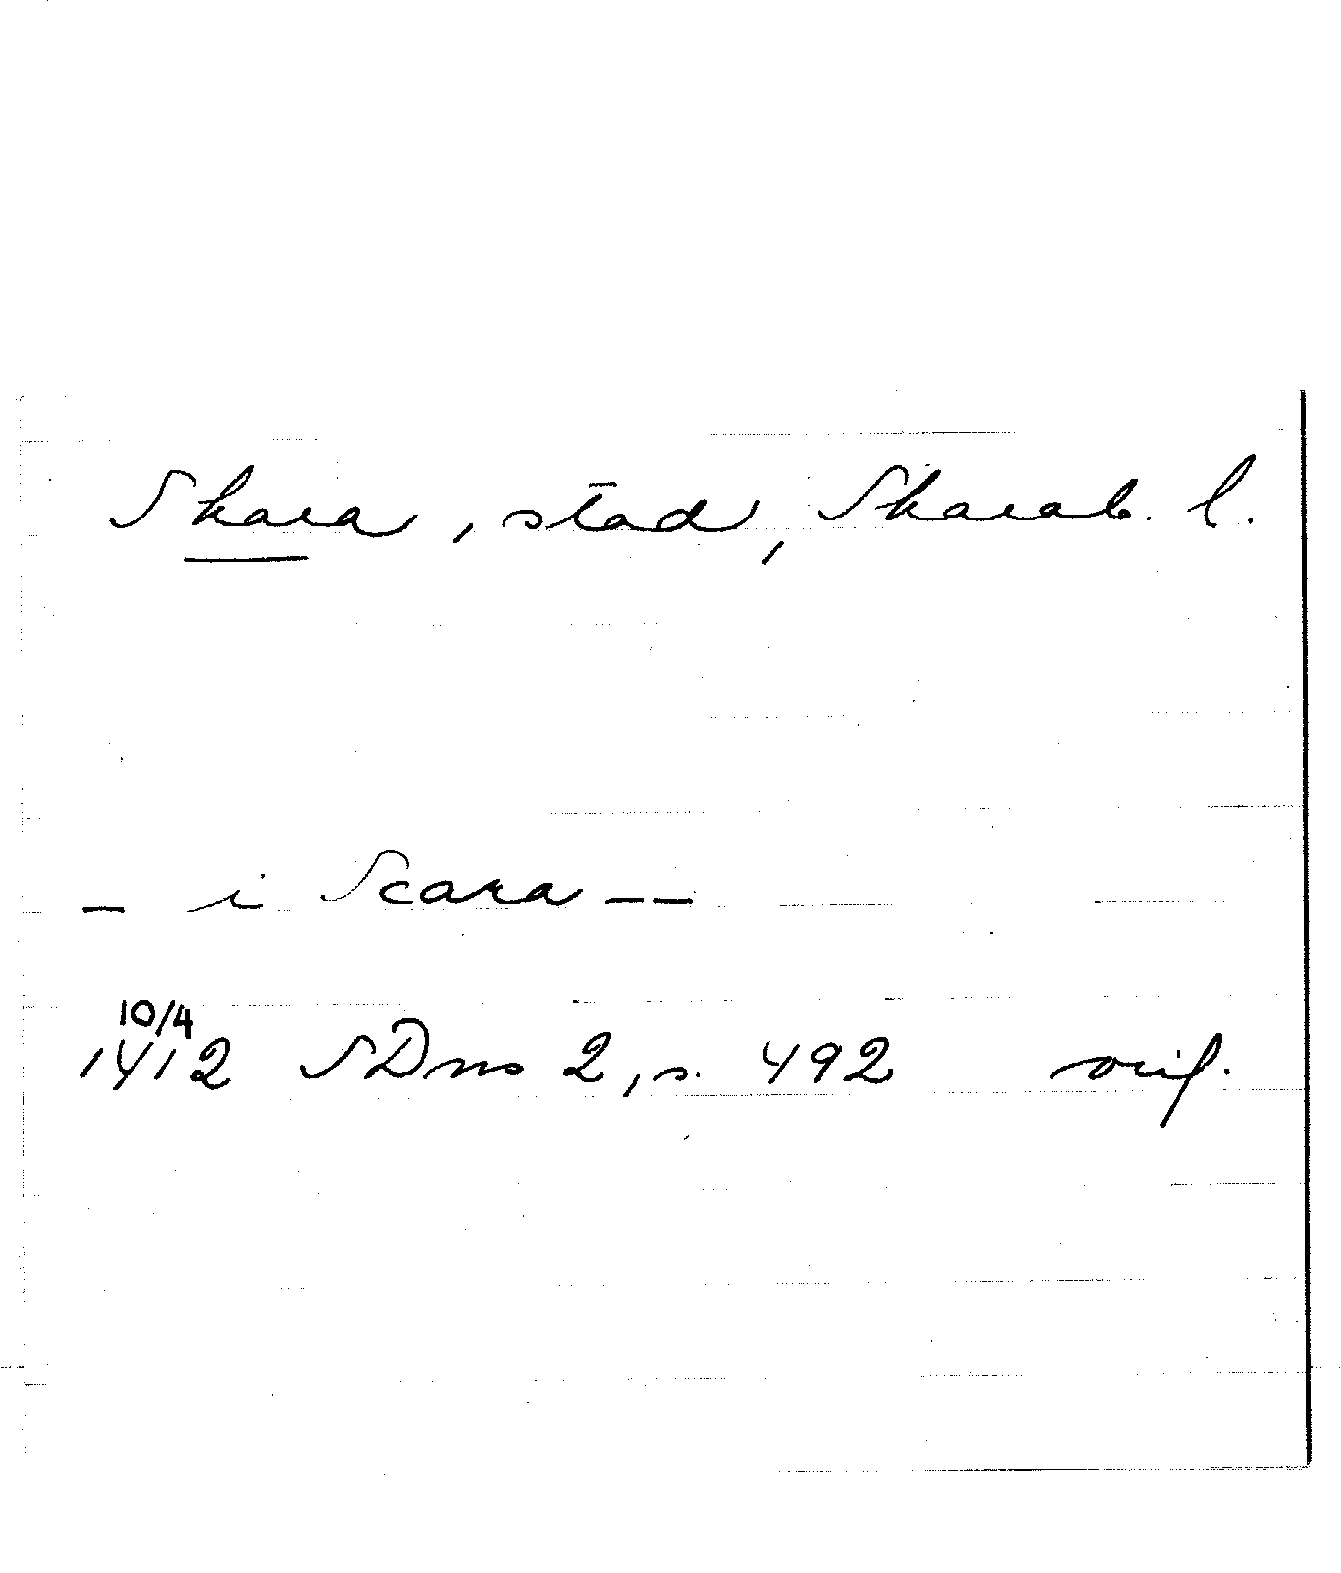 Skara, stad, Skarab. l.
– i Scara – –
10/4
1412 SDns 2, s. 492 orig.